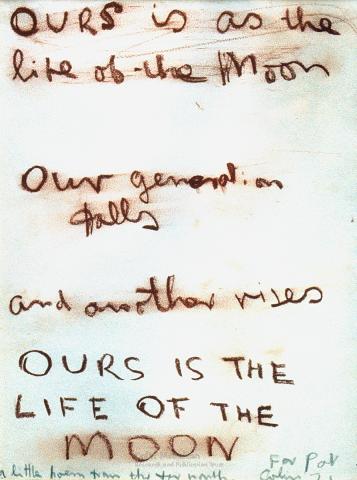 OURS is as the
life of the Moon
Our generation
falls
and another rises
OURS IS THE
LIFE OF THE
MOON
For Pat
a little poem from the far north
Colin
Research and Publication Trust